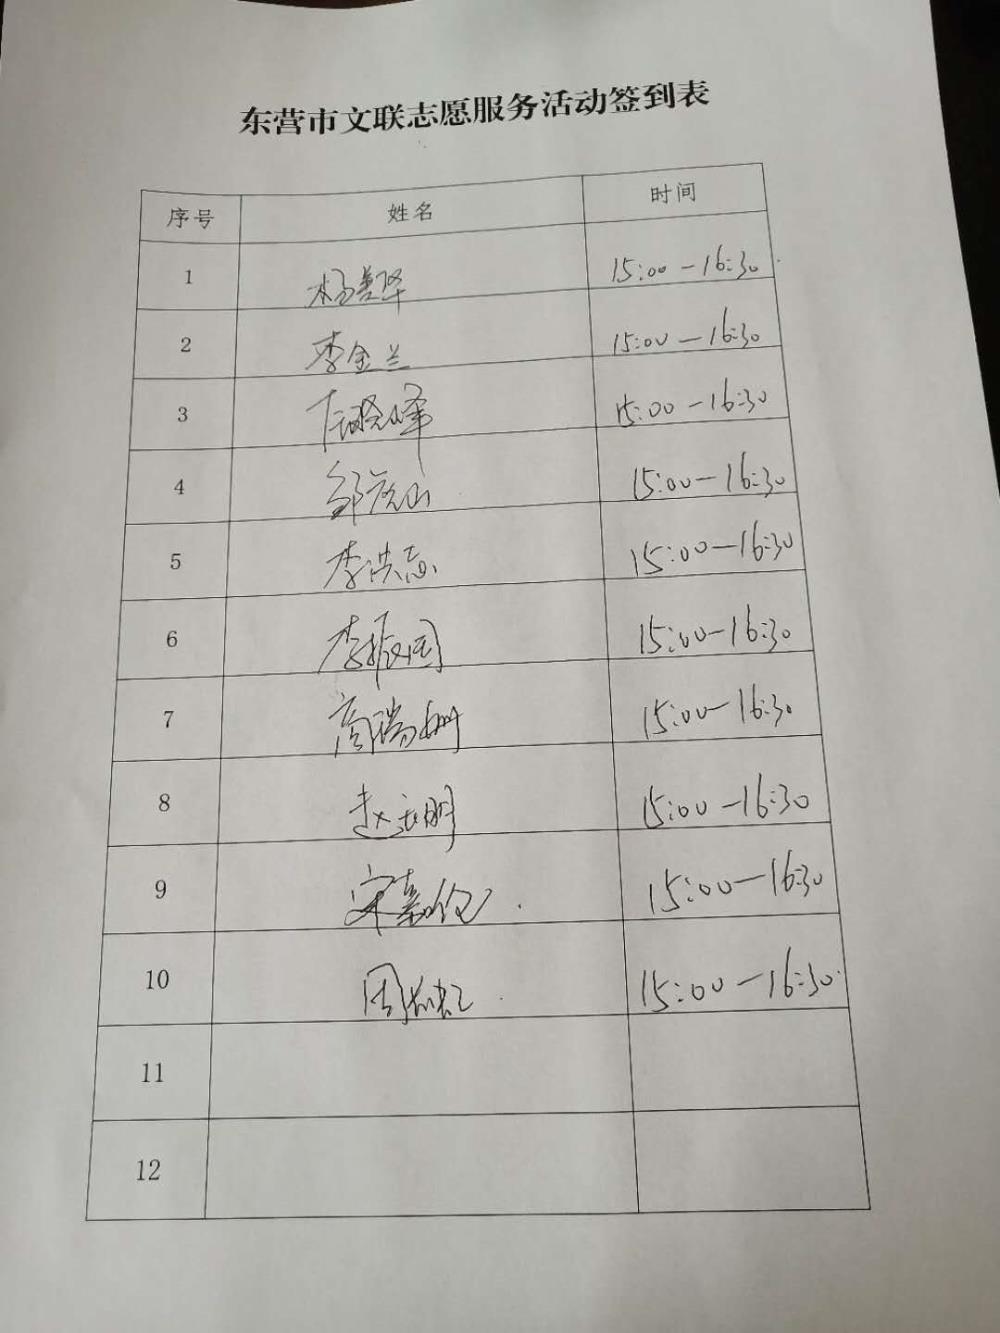 东营市文联志愿服务活动签到表
序号 姓名 时间
1 杨善择 15:00-16:30
2 李金兰 15:00-16:30
3 晓峰 15:00-16:30
4 邹 山 15:00-16:30
5 李洪志 15:00-16:30
6 李振国 15:00-16:30
7 商瑞娜 15:00-16:30
8 赵 明 15:00-16:30
9 宋嘉俊 15:00-16:30
10 周 15:00-16:30
11
12